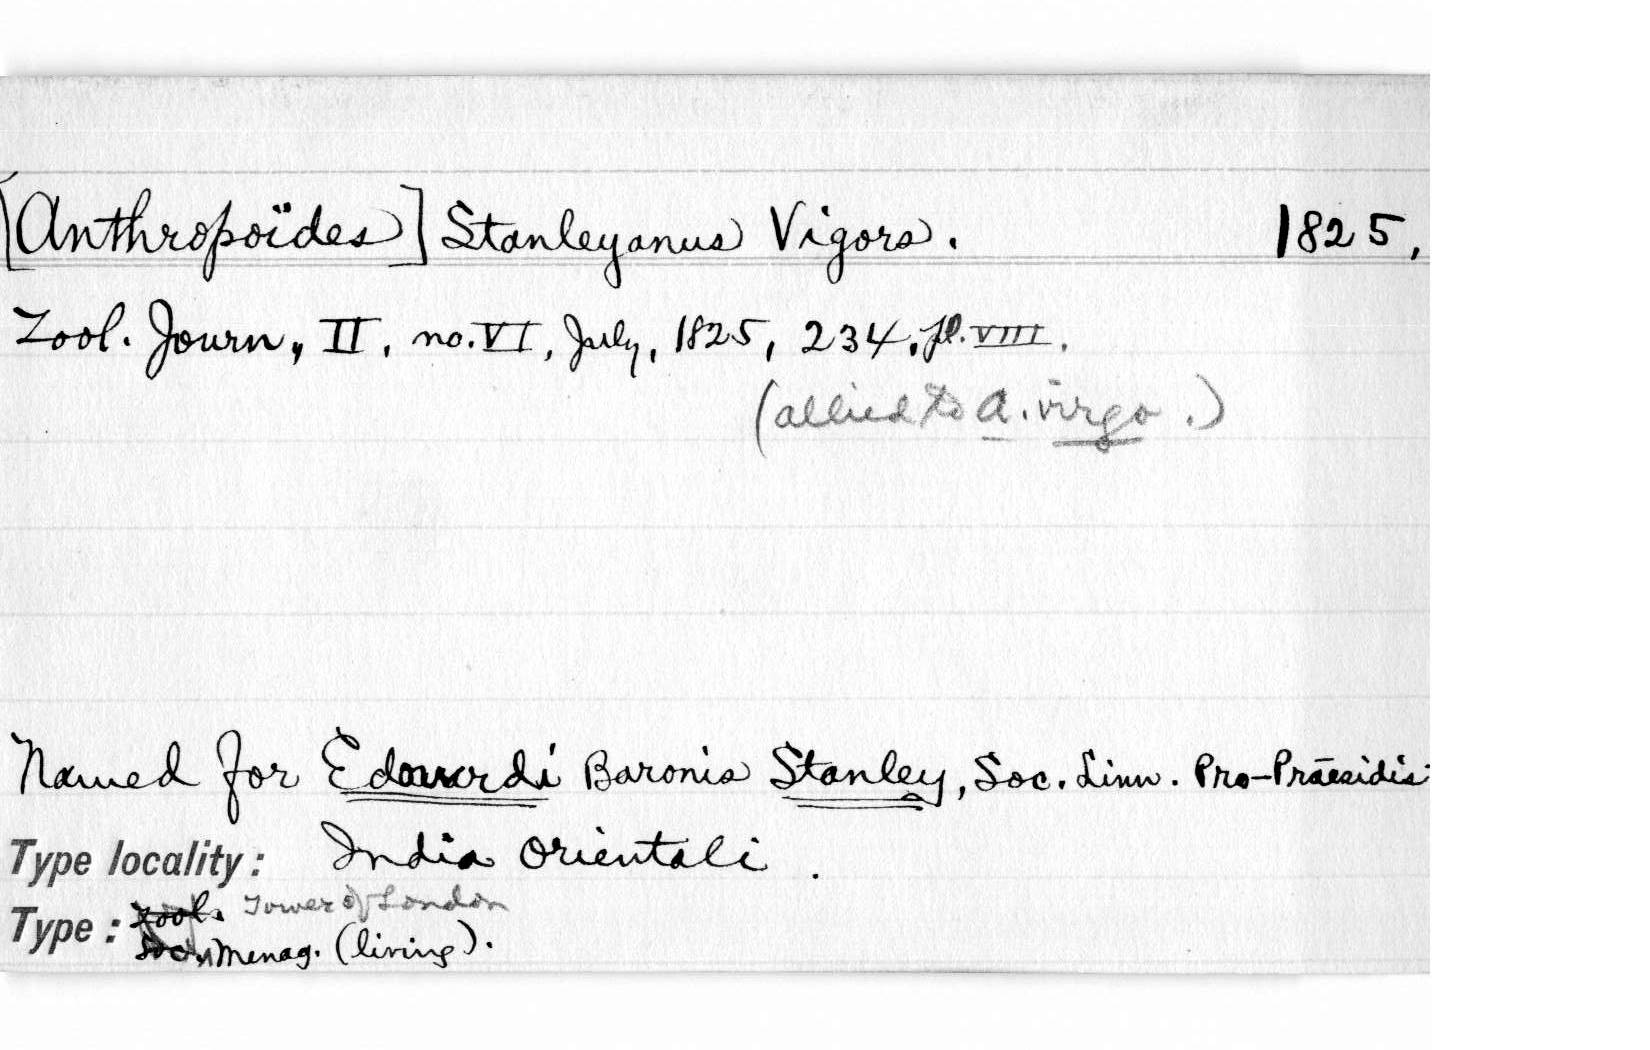 [Anthropoïdes] Stanleyanus Vigors. 1825,
Zool. Journ., II, no. VI, July, 1825, 234, pl. VIII.
(allied to A. virgo.)
Named for Edouardi Baronis Stanley, Soc. Linn. Pro-Praesidis
Type locality: India orientali.
Type: Zool. Tower of London
Soc. Menag. (living).